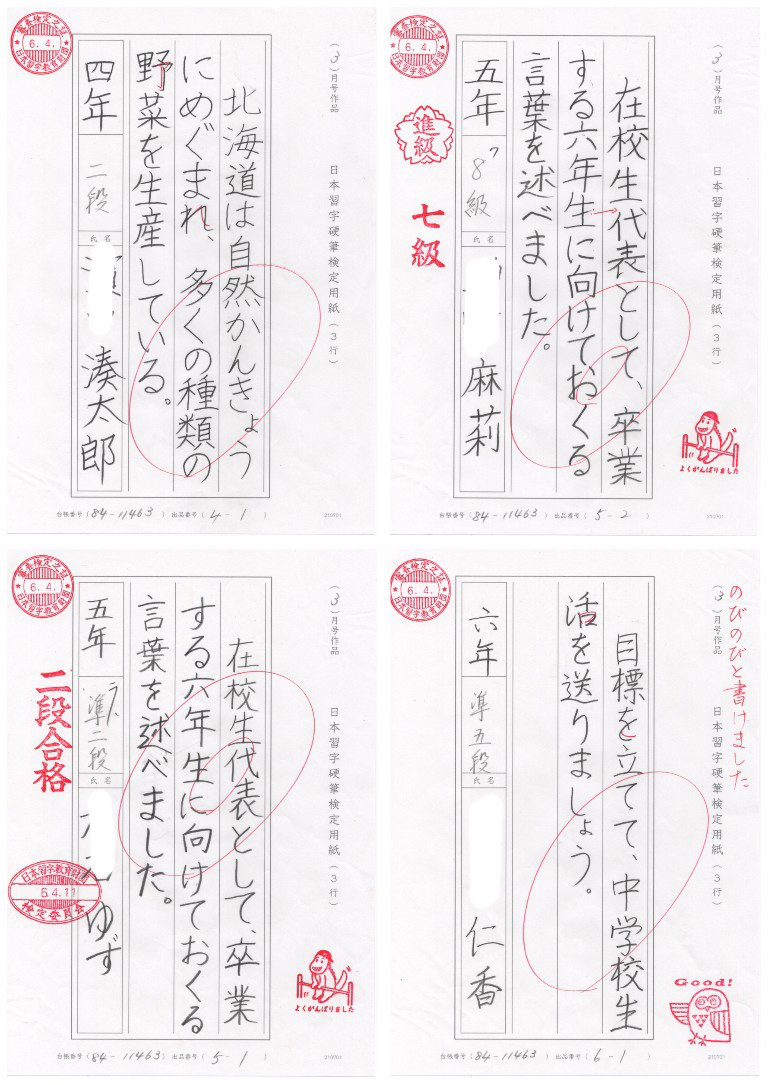 審査検定之証
6.4.
日本習字教育財団
(3)月号作品
日本習字硬筆検定用紙(3行)
北海道は自然かんきょう
にめぐまれ、多くの種類の
野菜を生産している。
四年
二段
氏名
湊太郎
台帳番号(84-11463)
出品番号(4-1)
210701
審査検定之証
6.4.
日本習字教育財団
(3)月号作品
日本習字硬筆検定用紙(3行)
在校生代表として、卒業
する六年生に向けておくる
言葉を述べました。
五年
8級
7
氏名
麻莉
進級
七級
よくがんばりました
台帳番号(84-11463)
出品番号(5-2)
210701
審査検定之証
6.4.
日本習字教育財団
(3)月号作品
日本習字硬筆検定用紙(3行)
在校生代表として、卒業
する六年生に向けておくる
言葉を述べました。
五年
準二段
氏名
ゆず
二段合格
日本習字教育財団
6.4.11
検定委員会
よくがんばりました
台帳番号(84-11463)
出品番号(5-1)
210701
審査検定之証
6.4.
日本習字教育財団
のびのびと書けました
(3)月号作品
日本習字硬筆検定用紙(3行)
目標を立てて、中学校生
活を送りましょう。
六年
準五段
氏名
仁香
Good!
台帳番号(84-11463)
出品番号(6-1)
210701